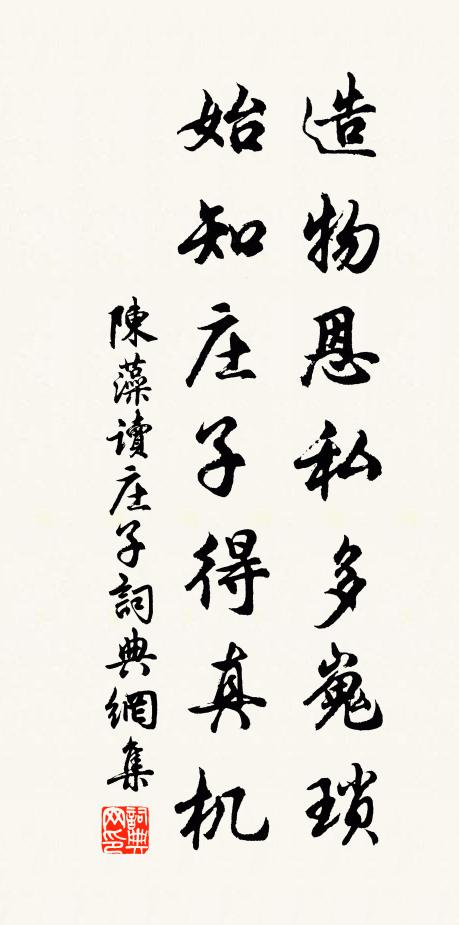 造物恩私多嵬瑣
始知庄子得真机
陳藻讀庄子詞典網集
詞典网印